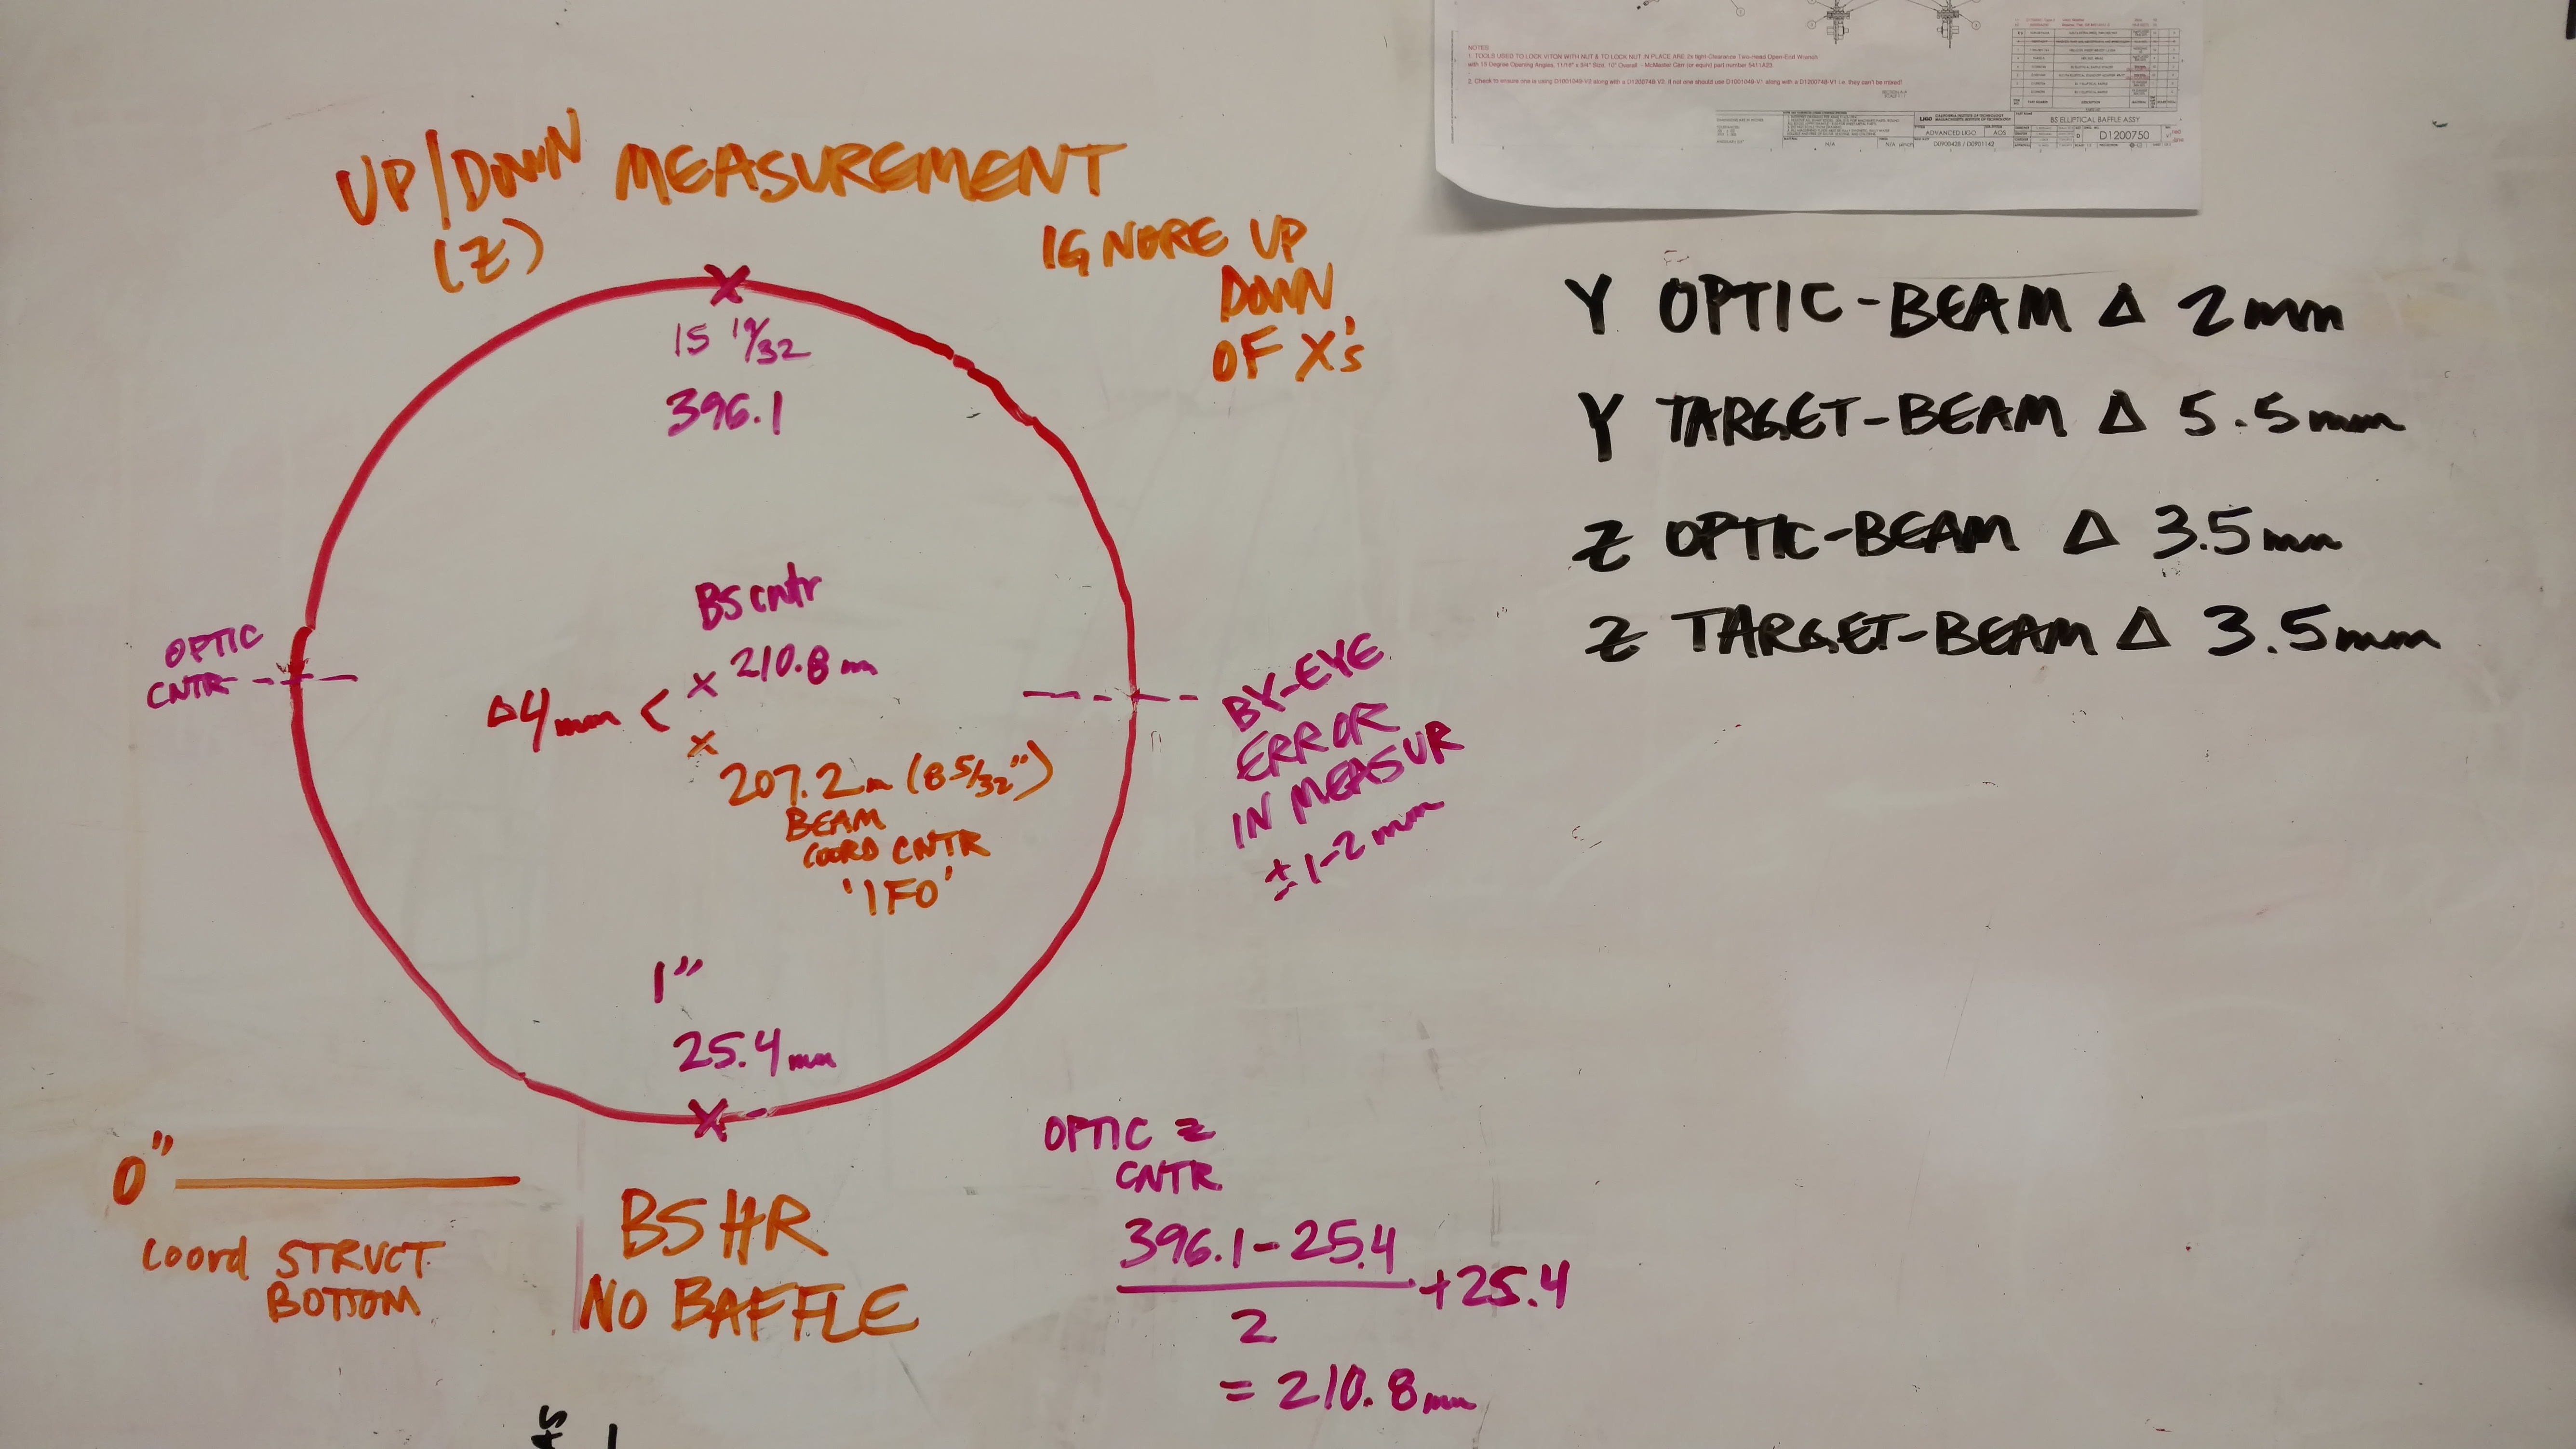 UP/DOWN MEASUREMENT
(Z)
IGNORE UP
DOWN
OF X's
X
15 19/32
396.1
BS cntr
X 210.8 mm
OPTIC
CNTR
Δ4mm <
X
207.2m (8 5/32")
BEAM
COORD CNTR
'IFO'
BY-EYE
ERROR
IN MEASUR
± 1-2 mm
1"
25.4 mm
X
0"
Coord STRUCT
BOTTOM
BS HR
NO BAFFLE
OPTIC Z
CNTR
396.1 - 25.4
2
+25.4
= 210.8 mm
Y OPTIC-BEAM Δ 2mm
Y TARGET-BEAM Δ 5.5mm
Z OPTIC-BEAM Δ 3.5mm
Z TARGET-BEAM Δ 3.5mm
NOTES
1. TOOLS USED TO LOCK VITON WITH NUT & TO LOCK NUT IN PLACE ARE 2x tight-Clearance Two-Head Open-End Wrench
with 15 Degree Opening Angles, 11/16" x 3/4" Size, 10" Overall - McMaster Carr (or equiv) part number 5411A23.
2. Check to ensure one is using D1001049-V2 along with a D1200748-V2, if not one should use D1001049-V1 along with a D1200748-V1 i.e. they can't be mixed!
LIGO
CALIFORNIA INSTITUTE OF TECHNOLOGY
MASSACHUSETTS INSTITUTE OF TECHNOLOGY
ADVANCED LIGO AOS
D0900428 / D0901142
N/A
N/A µinch
BS ELLIPTICAL BAFFLE ASSY
D
D1200750